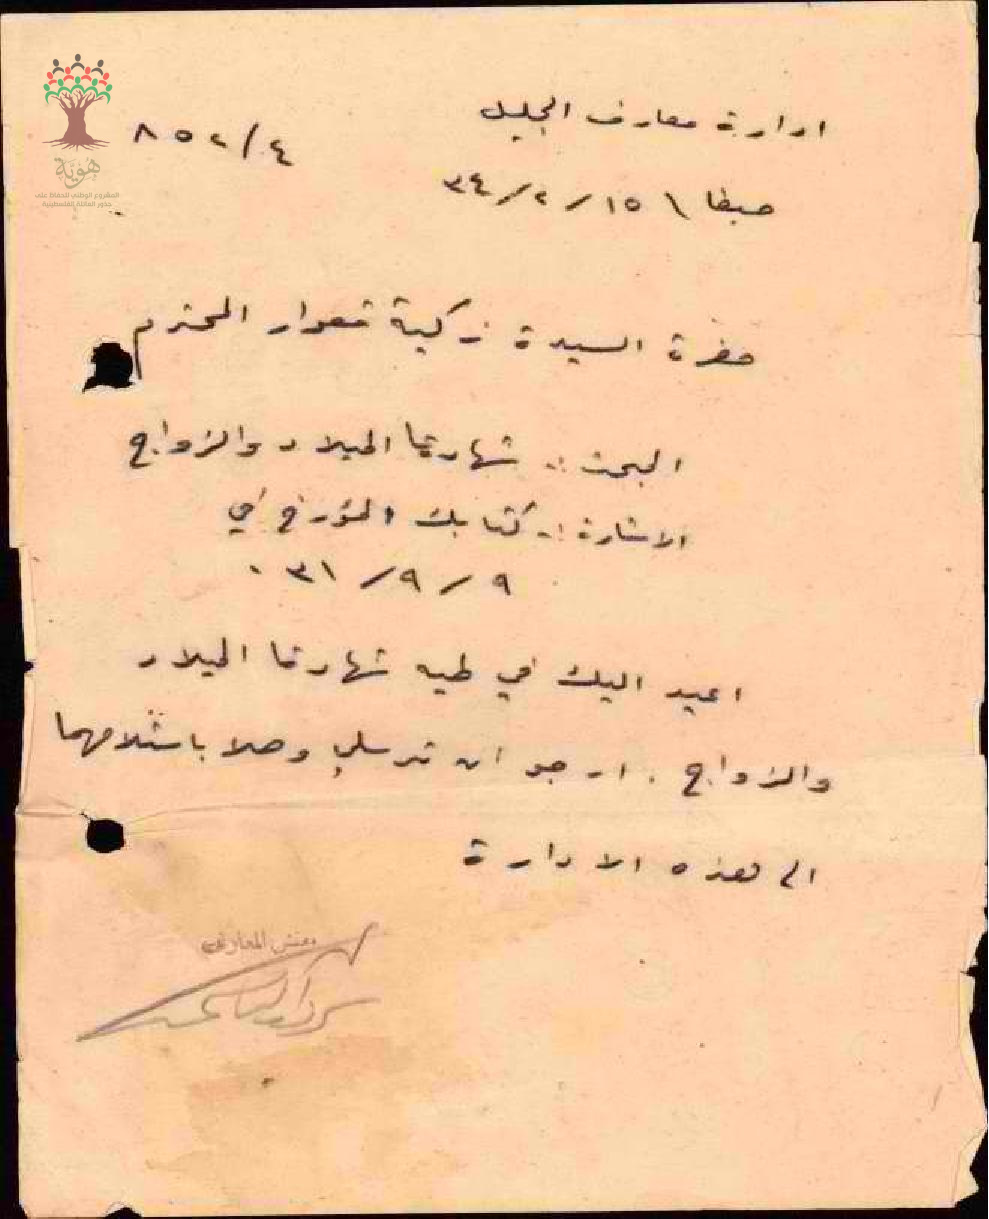 هُوِيَّة
المشروع الوطني للحفاظ على
جذور العائلة الفلسطينية
ادارة معارف الجليل
٨٥٢/٤
صبطا \ ١٥/٢/٣٤
حضرة السيدة زكية قعوار المحترم
البحث :. شهادتا الميلاد والزواج
الاشارة :. كتابك المؤرخ في
٩/٩/٣١ .
اعيد اليك في طيه شهادتا الميلاد
والزواج . ارجو ان ترسلي وصلا باستلامهما
الى هذه الادارة
مفتش المعارف